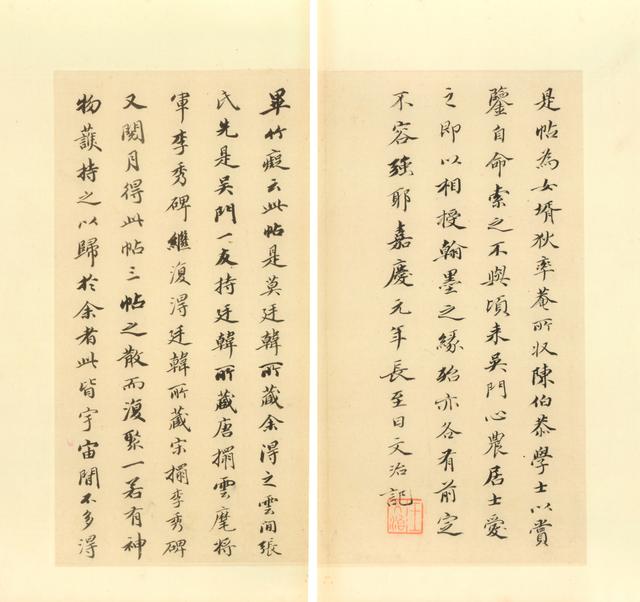 是帖為女壻狄率菴所収陳伯恭學士以賞
鑒自命索之不與頃来吴門心農居士愛
之即以相授翰墨之緣殆亦各有前定
不容強耶嘉慶元年長至日文治記
畢竹癡云此帖是莫廷韓所藏余得之雲間張
氏先是吴門一友持廷韓所藏唐搨雲麾將
軍李秀碑繼復得廷韓所藏宋搨李秀碑
又閱月得此帖三帖之散而復聚一若有神
物護持之以歸於余者此皆宇宙間不多得